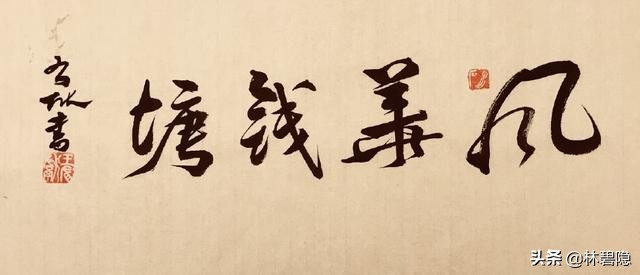 风華钱塘
书
头条 @林碧隐